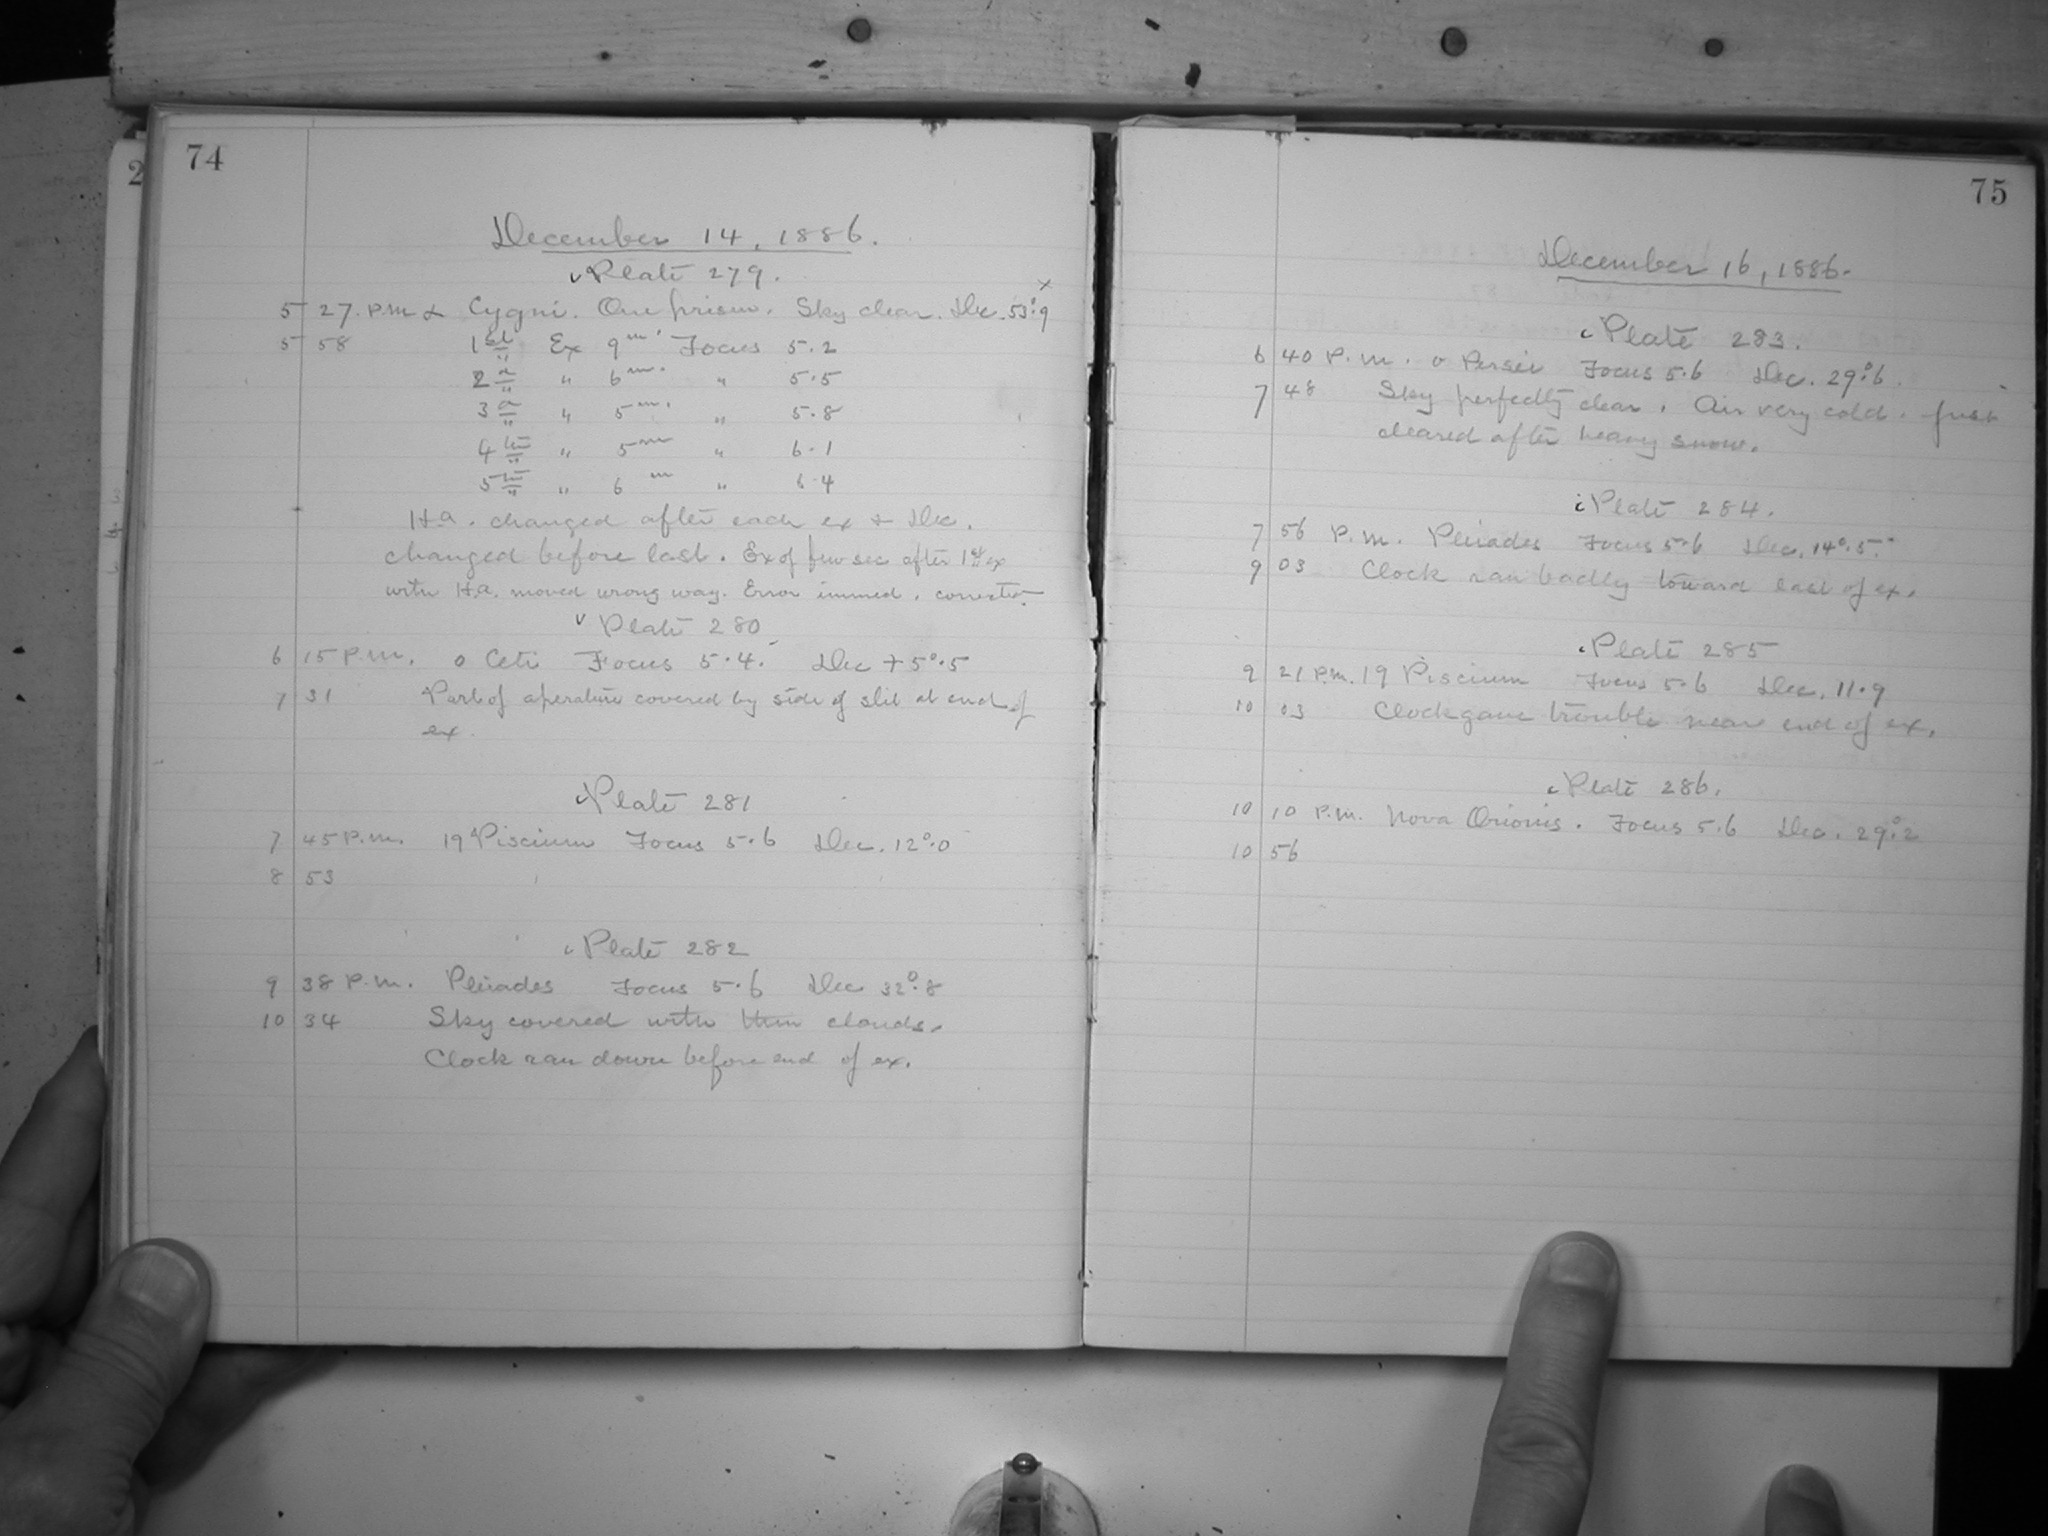 74
2
December 14, 1886.
Plate 279.
5 27 P.M. α Cygni. One prism. Sky clear. Dec. 53°.9
5 58 1st Ex 9m. Focus 5.2
2d " 6m. " 5.5
3d " 5m. " 5.8
4th " 5m " 6.1
5th " 6m " 6.4
H.a. changed after each ex & Dec.
changed before last. Ex of few sec after 1st ex
with H.a. moved wrong way. Error immed. corrected
Plate 280
6 15 P.M. o Ceti Focus 5.4. Dec +5°.5
7 31 Part of aperature covered by side of slit at end of
ex.
Plate 281
7 45 P.M. 19 Piscium Focus 5.6 Dec. 12°.0
8 53
Plate 282
9 38 P.M. Pleiades Focus 5.6 Dec 32°.8
10 34 Sky covered with thin clouds.
Clock ran down before end of ex.
75
December 16, 1886.
Plate 283.
6 40 P.M. o Persei Focus 5.6 Dec. 29°.6.
7 48 Sky perfectly clear. Air very cold. Just
cleared after heavy snow.
Plate 284.
7 56 P.M. Pleiades Focus 5.6 Dec. 14°.5.
9 03 Clock ran badly toward last of ex.
Plate 285
9 21 P.M. 19 Piscium Focus 5.6 Dec. 11.9
10 03 Clock gave trouble near end of ex.
Plate 286.
10 10 P.M. Nova Orionis. Focus 5.6 Dec. 29°.2
10 56